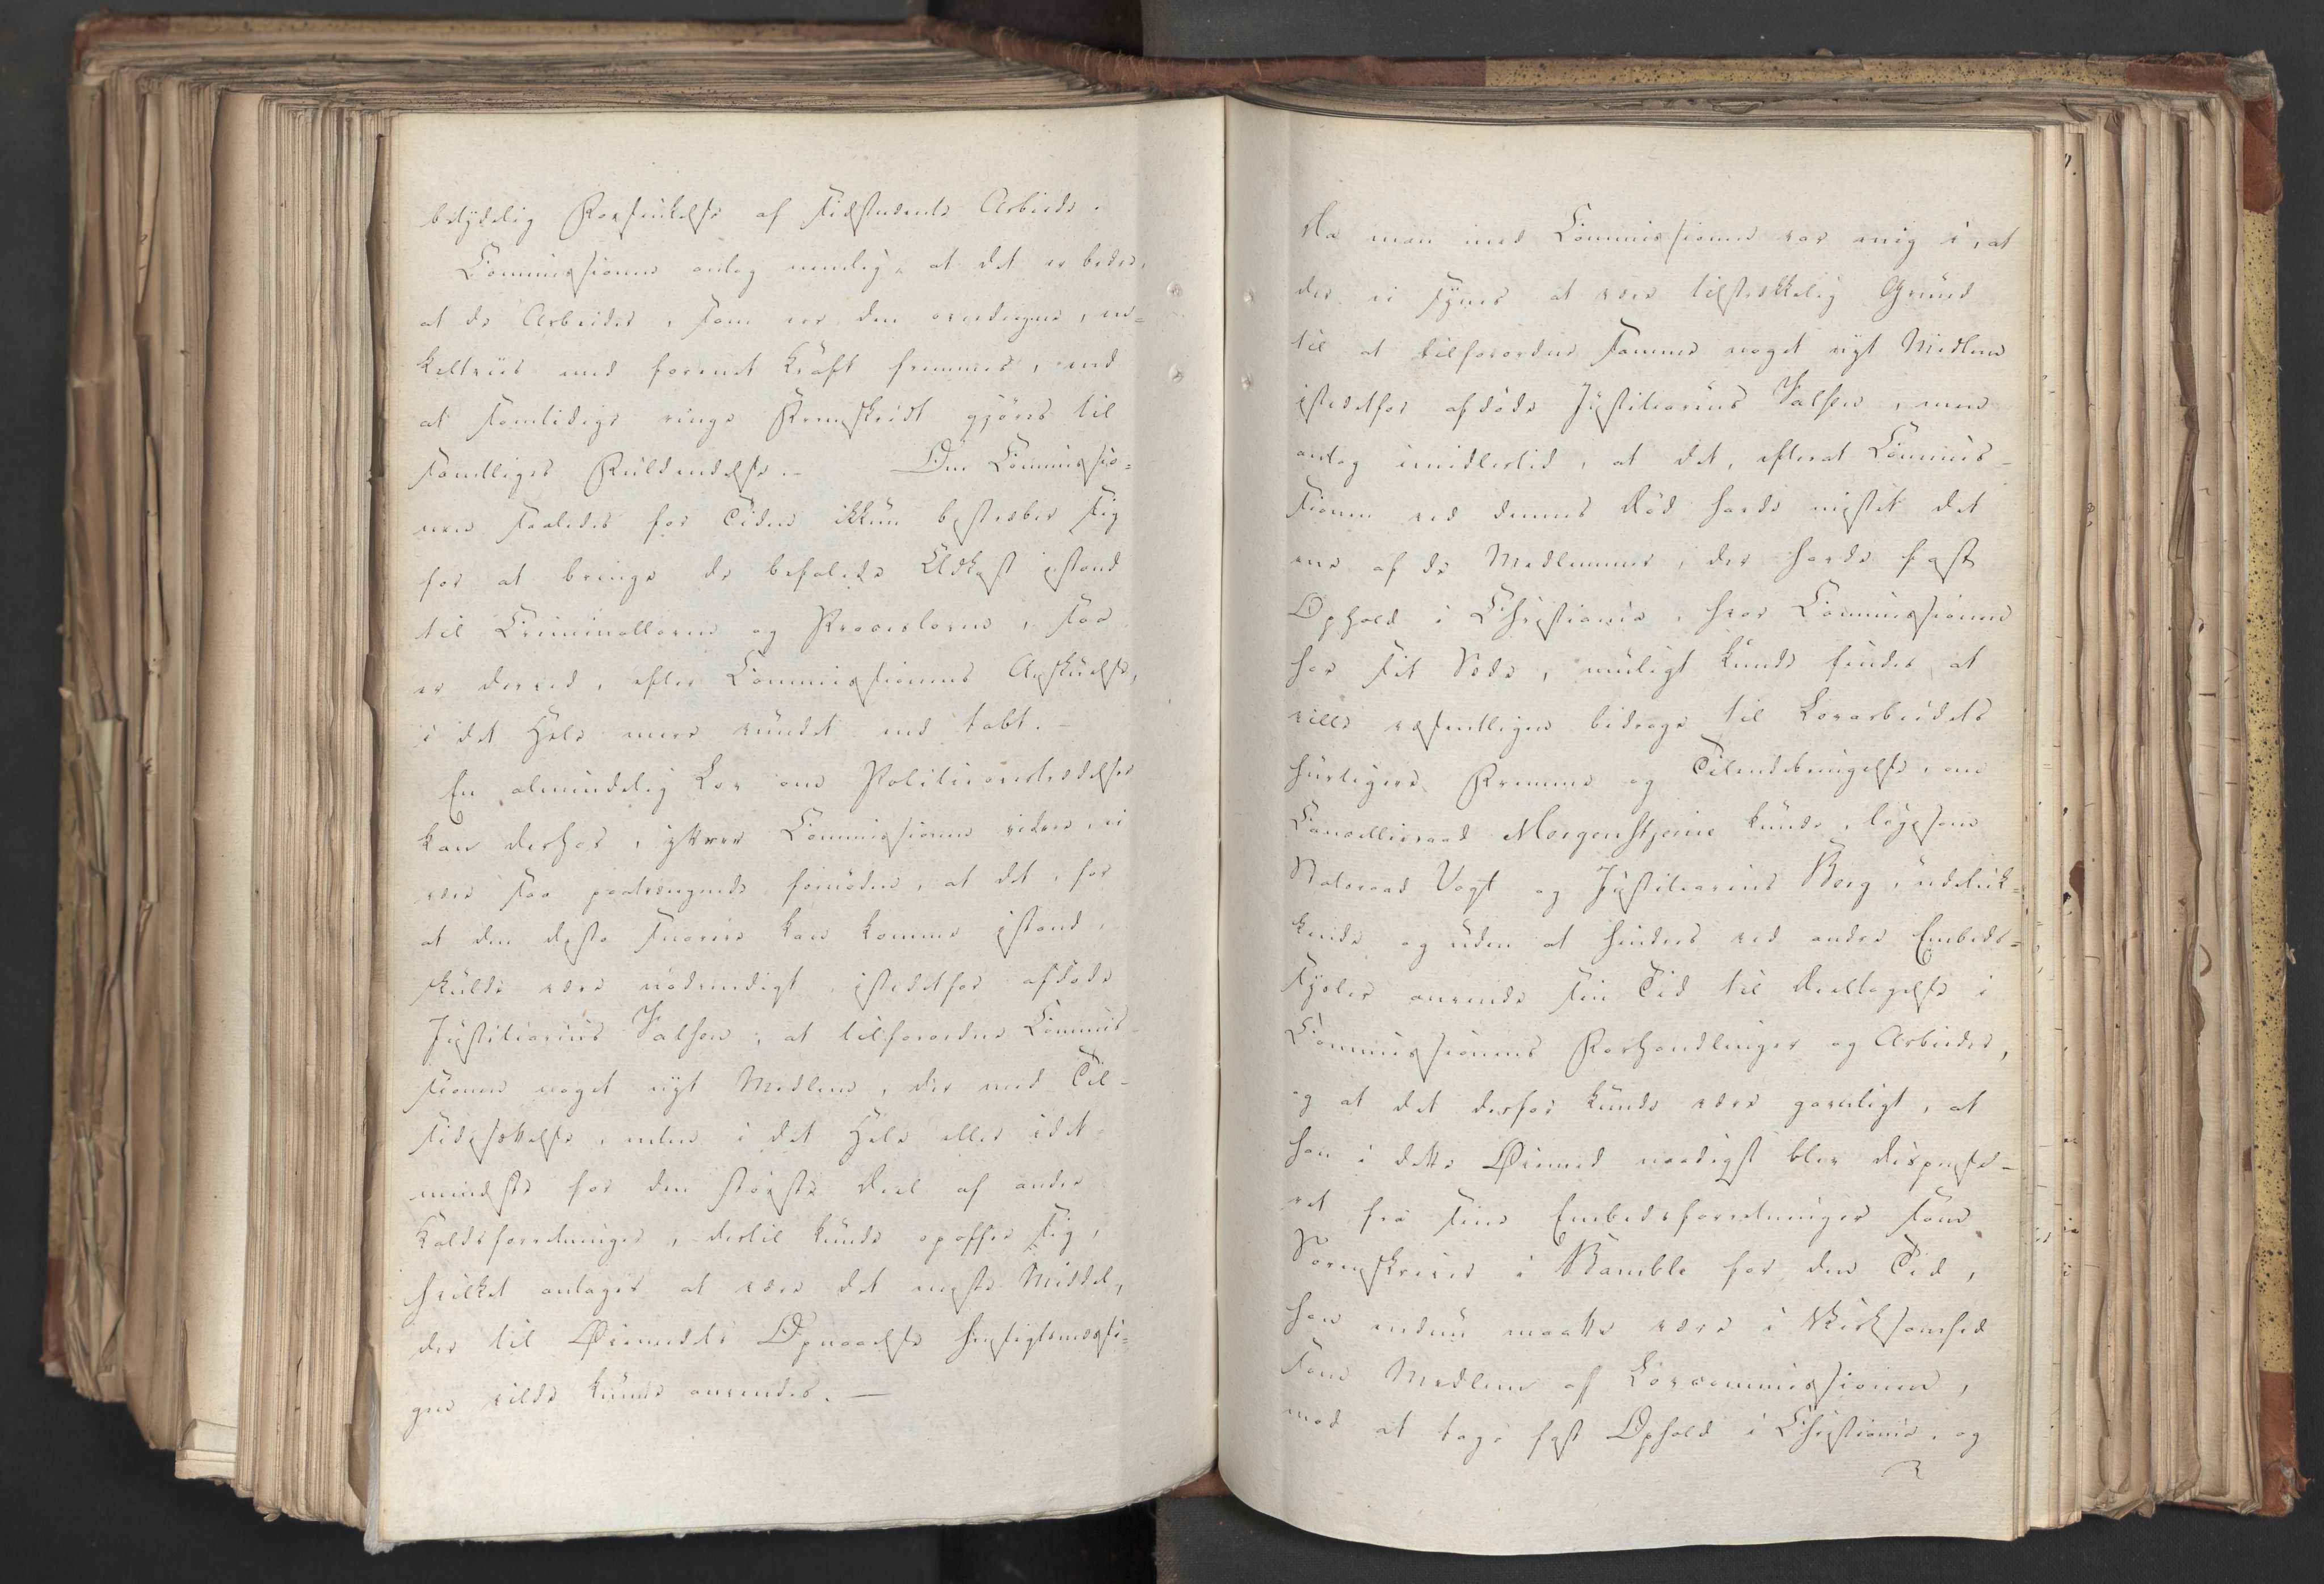 betydelig Forsinkelse af sidstnævnte Arbeide.
Commissionen antog nemlig, at det er bedre,
at de Arbeider, som ere den overdragne, en-
keltviis med forenet Kraft fremmes, end
at samtidige ringe Fremskridt gjöres til
samtliges Fuldendelse. – Om Commissio-
nen saaledes for Tiden ikkun bestræber sig
for at bringe de befalede Udkast istand
til Criminalloven og Proceslovene, saa
er derved, efter Commissionens Anskuelse,
i det Hele mere vundet end tabt. –
En almindelig Lov om Politieovertrædelser
kan derhos, yttrer Commissionen videre, ei
være saa paatrængende fornöden, at det, for
at den desto snarere kan komme istand,
skulde være nödvendigt, istedetfor afdöde
Justitiarius Falsen, at tilforordne Commis-
sionen noget nyt Medlem, der med Til-
sidesættelse, enten i det Hele eller idet-
mindste for den störste Deel af andre
Kaldsforretninger, dertil kunde opoffre sig,
hvilket antages at være det eneste Middel,
der til Öiemedets Opnaaelse hensigtsmæssi-
gen vilde kunne anvendes. –
Da man med Commissionen var enig i, at
der ei synes at være tilstrækkelig Grund
til at tilforordne samme noget nyt Medlem
istedetfor afdöde Justitiarius Falsen, men
antog imidlertid, at det, efterat Commis-
sionen ved dennes Död havde mistet det
ene af de Medlemmer, der havde fast
Ophold i Christiania, hvor Commissionen
har sit Sæde, muligt kunde findes at
ville væsentligen bidrage til Lovarbeidets
hurtigere Fremme og Tilendebringelse, om
Cancelliraad Morgenstjerne kunde, ligesom
Statsraad Vogt og Justitiarius Berg, udeluk-
kende og uden at hindres ved andre Embeds-
sysler anvende sin Tid til Deeltagelse i
Commissionens Forhandlinger og Arbeider,
og at det derfor kunde være gavnligt, at
han i dette Öiemed naadigst blev dispense-
ret fra sine Embedsforretninger som
Sorenskriver i Bamble for den Tid,
han endnu maatte være i Virksomhed
som Medlem af Lovcommissionen,
mod at tage fast Ophold i Christiania, og